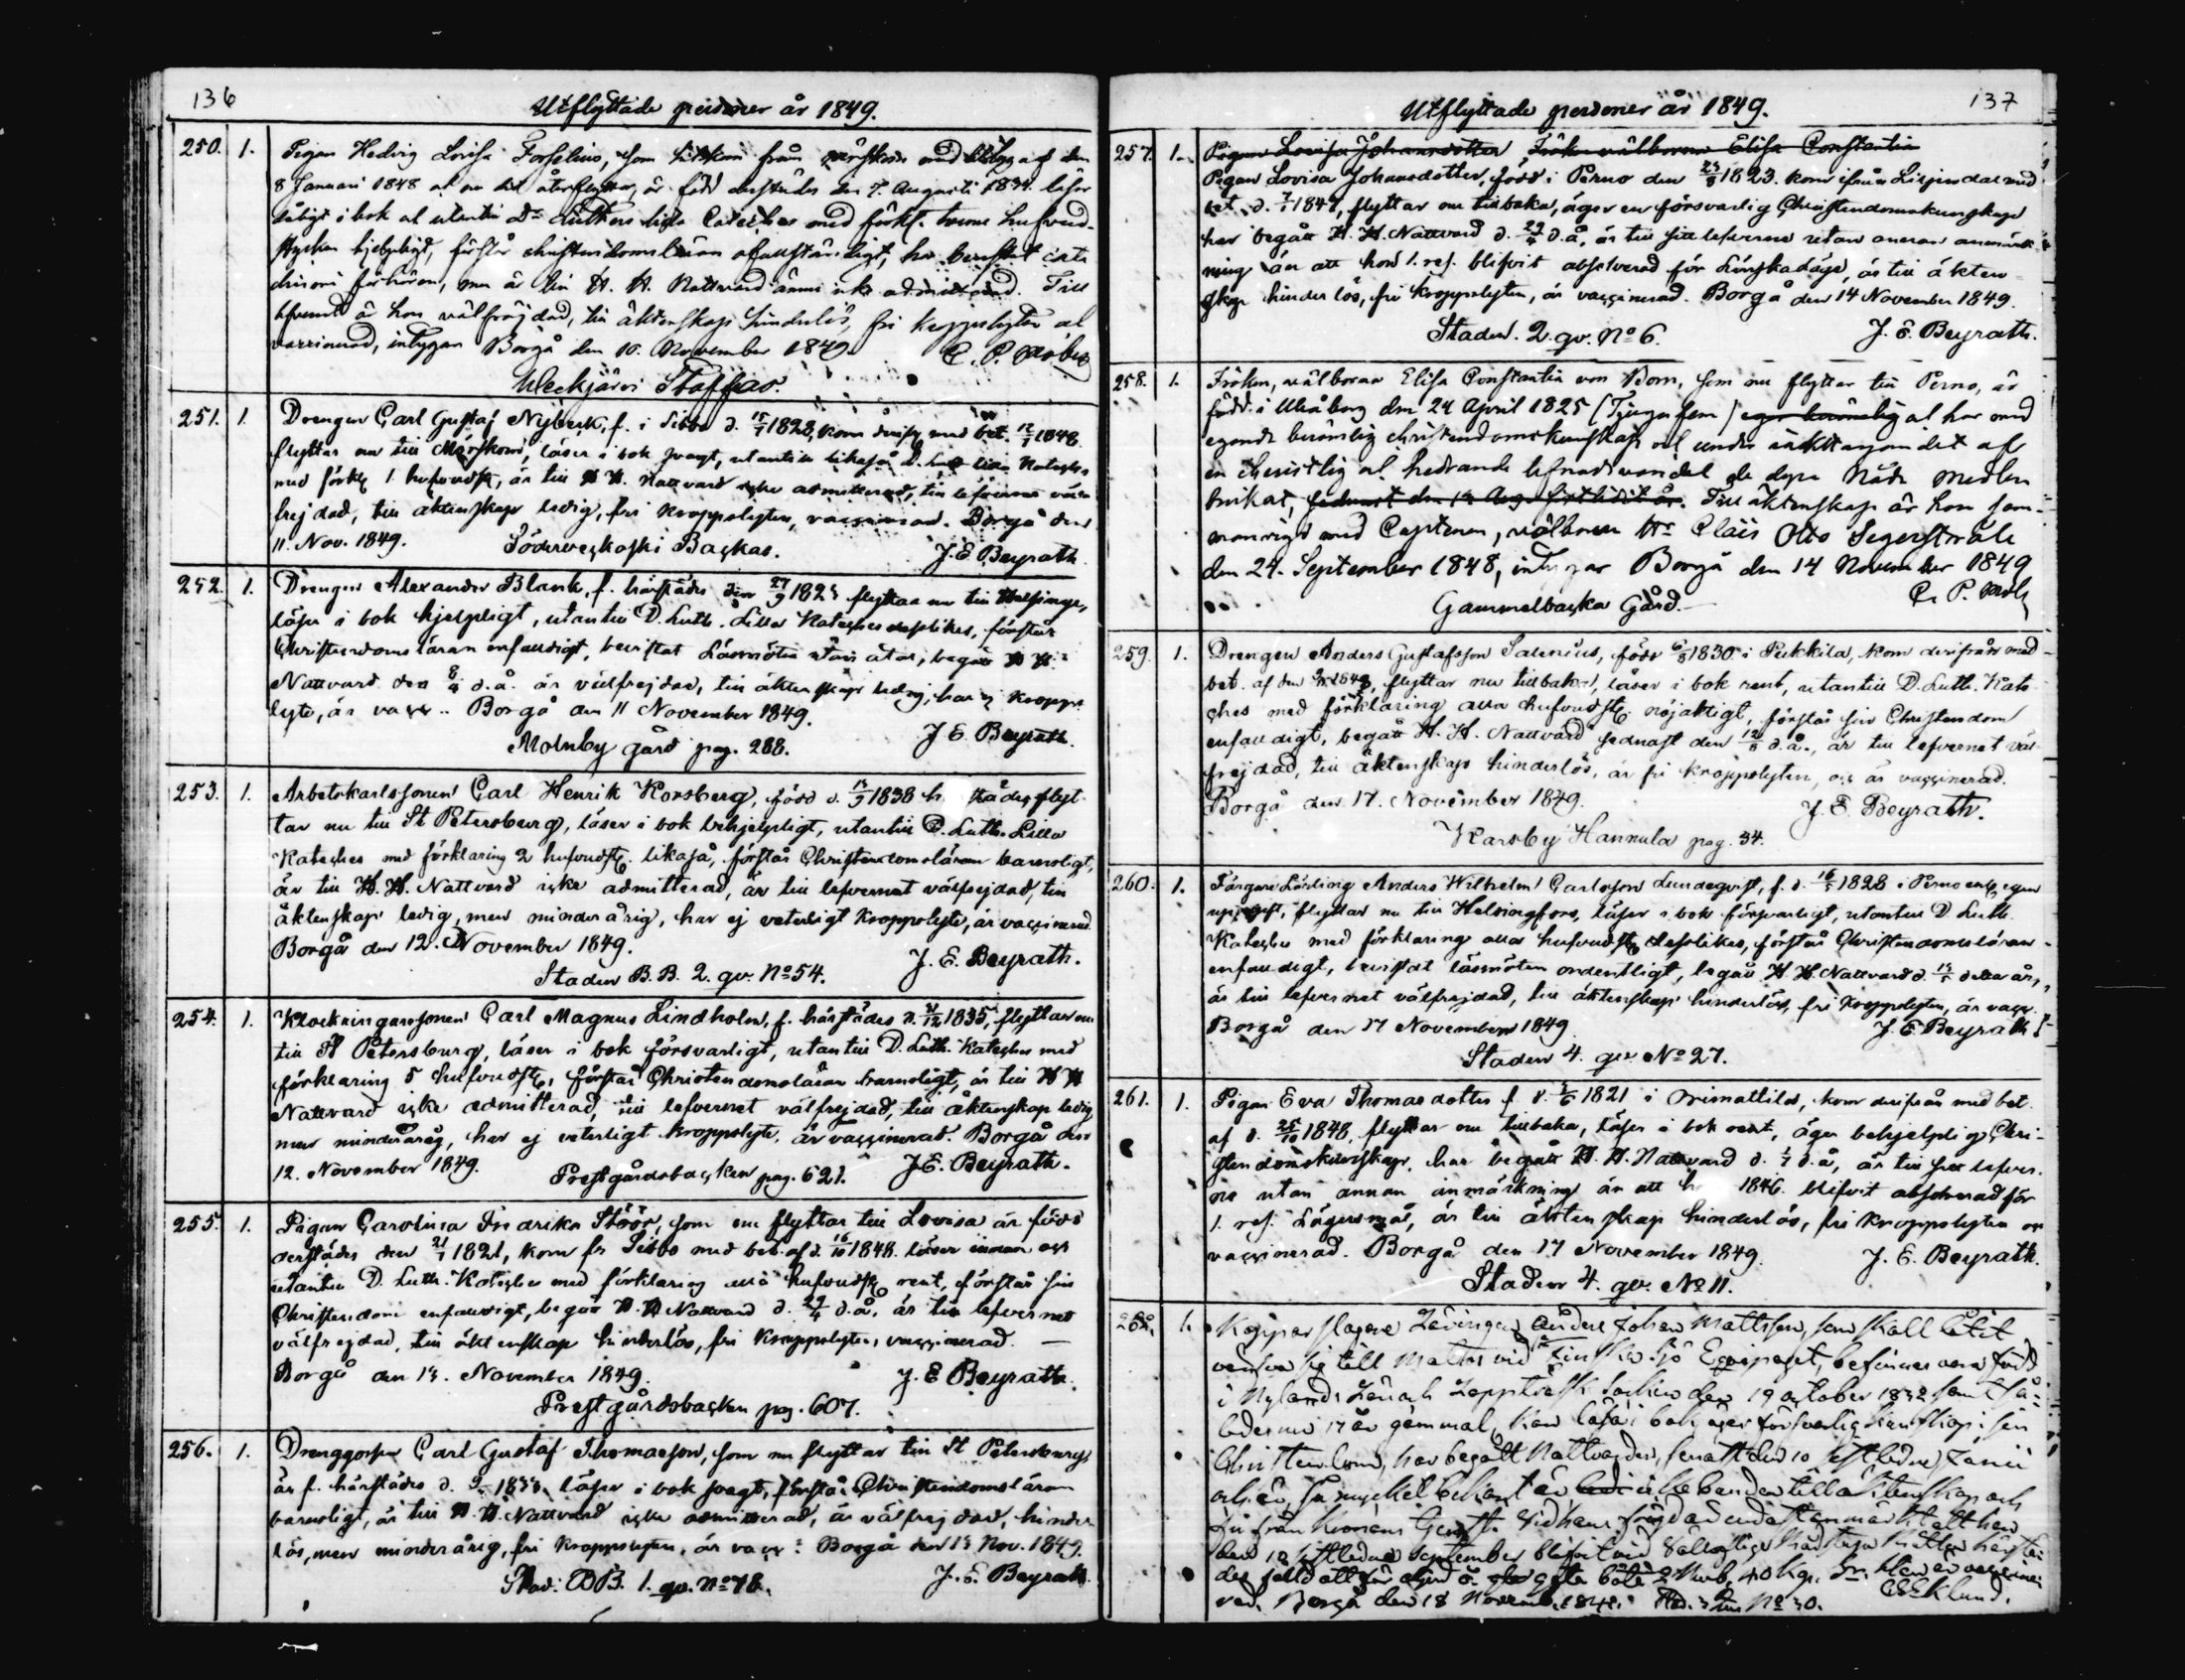 136
Utflyttade personer år 1849.
250. 1. Pigan Hedvig Lovisa Forselius, som hitkom från Mörskom med betyg af den
8 Januari 1848 och nu dit återflyttar, är född derstädes den 7. Augusti 1834. läser
i bok och utantill Dr Luthers lilla Cateches med förkl.
hjelpligt, förstår christendomsläran ofullständigt, har bevistat
förhören, men är till H. H. Nattvard ännu ick admitterad. Till
lefvernet är hon välfrejdad, till äktenskap hinderlös, fri kroppslyten och
vaccinerad, intygar Borgå den 10. November 1849.
Weckjärvi Staffas.
251. 1. Drengen Carl Gustaf Nyberk, f. i Sibbo d. 15/7 1828, kom med bet. 1848
flyttar nu till Mörskom, läser i bok svagt, utantill likaså D. Luth. lilla Kateches
med förkl. 1 hufvudst, är till H. H. Nattvard icke admitterad, till lefvernet väl
frejdad, till äktenskap ledig, fri kroppslyten, vaccinerad. Borgå den
11. Nov. 1849. Söderveckoski Backas. J. E. Beyrath
252. 1. Drengen Alexander Blank, f. härstädes den 27/9 1825 flyttar nu till Helsinge,
läser i bok hjelpligt, utantill D. Luth. Lilla Kateches deslikes, förstår
Christendomsläran enfaldigt, bevistat Läsmöten, begått H. H.
Nattvard den 8/4 d. å. är välfrejdad, till äktenskap ledig, har ej kropps
lyte, är vacc. Borgå den 11 November 1849.
Molnby gård pag. 288. J. E. Beyrath.
253. 1. Arbetskarlssonen Carl Henrik Korsberg, född d. 1838 h städes, flyt
tar nu till St Petersburg, läser i bok behjelpligt, utantill D. Luth. Lilla
Kateches med förklaring 2 hufvudst. likaså, förstår Christendomsläran barnsligt,
är till H. H. Nattvard icke admitterad, är till lefvernet välfrejdad, till
äktenskap ledig, men minderårig, har ej veterligt kroppslyte, är vaccinerad.
Borgå den 12. November 1849. J. E. Beyrath.
Staden B. B. 2. qv. No 54.
254. 1. Klockringaresonen Carl Magnus Lindholm, f. härstädes d. 31/12 1835, flyttar nu
till St Petersburg, läser i bok försvarligt, utantill D. Luth. Kateches med
förklaring 5 hufvudst, förstår Christendomsläran barnsligt, är till H. H
Nattvard icke admitterad, till lefvernet välfrejdad, till äktenskap ledig
men minderårig, har ej veterligt kroppslyte, är vaccinerad. Borgå den
12. November 1849. Prestgårdsbacken pag. 621. J. E. Beyrath.
255. 1. Pigan Carolina Fredrika Stöör, som nu flyttar till Lovisa är född
derstädes den 21/7 1821, kom fr Sibbo med bet. af d. 16/10 1848. läser innan och
utantill D. Luth. Kateches med förklaring alla hufvudst rent, förstår sin
Christendom enfaldigt, begått H. H Nattvard d. 29/4 d. å, är till lefvernet
välfrejdad, till äktenskap hinderlös, fri kroppslyten, vaccinerad.
Borgå den 13. November 1849. J. E Beyrath.
Prestgårdsbacken pag. 607.
256. 1. Drenggossen Carl Gustaf Thomasson, som nu flyttar till St Petersburg,
är f. härstädes d. läser i bok svagt, förstår Christendomsläran
barnsligt, är till H. H. Nattvard icke admitterad, är välfrejdad, hinder
lös, men minderårig, fri kroppslyten, är vacc: Borgå den 13 Nov. 1849.
Stad: BB. 1. qv. No 78. J. E. Beyrath
137
Utflyttade personer år 1849.
257. 1. Pigan Lovisa Johansdotter Frökn välborna Elisa Constantia
Pigan Lovisa Johansdotter, född i Perno den 23/8 1823. kom ifrån Liljendal med
bet. d. 7/1 1847, flyttar nu tillbaka, äger en försvarlig Christendomskunskap
har begått H. H. Nattvard d. 29/4 d. å, är till sitt lefverne utan annan anmärk
ning än att hon 1. res. blifvit absolverad för Lönskaläge, är till äkten
skap hinderlös, fri kroppslyten, är vaccinerad. Borgå den 14 November 1849.
Staden. 2. qv. No 6. J. E. Beyrath.
258. 1. Fröken, välborna Elisa Constantia von Born, som nu flyttar till Perno, är
född i Uleåborg den 24 April 1825 (Tjugufem) och har med
egande berömlig christendomskunskap och under iakttagandet af
en christlig och hedrande lefnadsvandel de dyra Nåde medlen
brukat, Till äktenskap är hon
med Capitenen, välborne Hr Claës Otto Segerstråle
den 24. September 1848, intygar Borgå den 14 November 1849
Gammelbacka Gård.
259. 1. Drengen Anders Gustafsson Salenius, född 6/8 1830 i Pukkila, kom derifrån med
bet. af den 1848, flyttar nu tillbaka, läser i bok rent, utantill D. Luth. Kate
ches med förklaring alla hufvudst nöjaktigt, förstår sin Christendom
enfaldigt, begått H. H. Nattvard sednast den d. å., är till lefvernet väl
frejdad, till äktenskap hinderlös, är fri kroppslyten, och är vaccinerad.
Borgå den 17. November 1849. J. E. Beyrath.
Karsby Hannula pag. 34.
260. 1. Färgare Lärling Anders Wilhelm Carlsson Lundeqvist, f. d. 16/5 1828 i Perno enl. egen
uppgift, flyttar nu till Helsingfors, läser i bok försvarligt, utantill D Luth.
Kateches med förklaring alla hufvudst deslikes, förstår Christendomsläran
enfaldigt, bevistat läsmöten ordentligt, begått H. H. Nattvard d. detta år,
är till lefvernet välfrejdad, till äktenskap hinderlös, fri kroppslyten, är vacc.
Borgå den 17 November 1849. J. E. Beyrath
Staden 4. qv. No 27.
261. 1. Pigan Eva Thomasdotter f. d. 1821 i Orimattila, kom derifrån med bet.
af d. 25/10 1848, flyttar nu tillbaka, läser i bok rent, äger behjelplig Chri-
stendomskunskap, har begått H. H. Nattvard d. 1/7 d. å, är till sitt lefver
ne utan annan anmärkning än att h 1846. blifvit absolverad för
1. res. Lägersmål, är till äktenskap hinderlös, fri kroppslyten och
vaccinerad. Borgå den 17 November 1849. J. E. Beyrath.
Staden 4. qv. No 11.
262. 1. Kopparslagare Lärlingen Anders Johan Mattsson, som skall låtit
till Matros vid Finska Sjö Equipaget, befinnes vara född
i Nylands Län och Socken den 19 october 1832 samt så-
ledes nu 17 år gammal, kan läsa i bok, äger försvarlig kunskap i sin
Christendom, har begått Nattvarden, senast den 10 sistledne Junii
och är, så mycket bekant är icke bunden till äktenskap och
fri från Kronans
den 12 sistledne September blifvit vid
4 Rub. 40 Kop. Sr.
Borgå den 18 Novemb. 1849. No 30. Eklund.